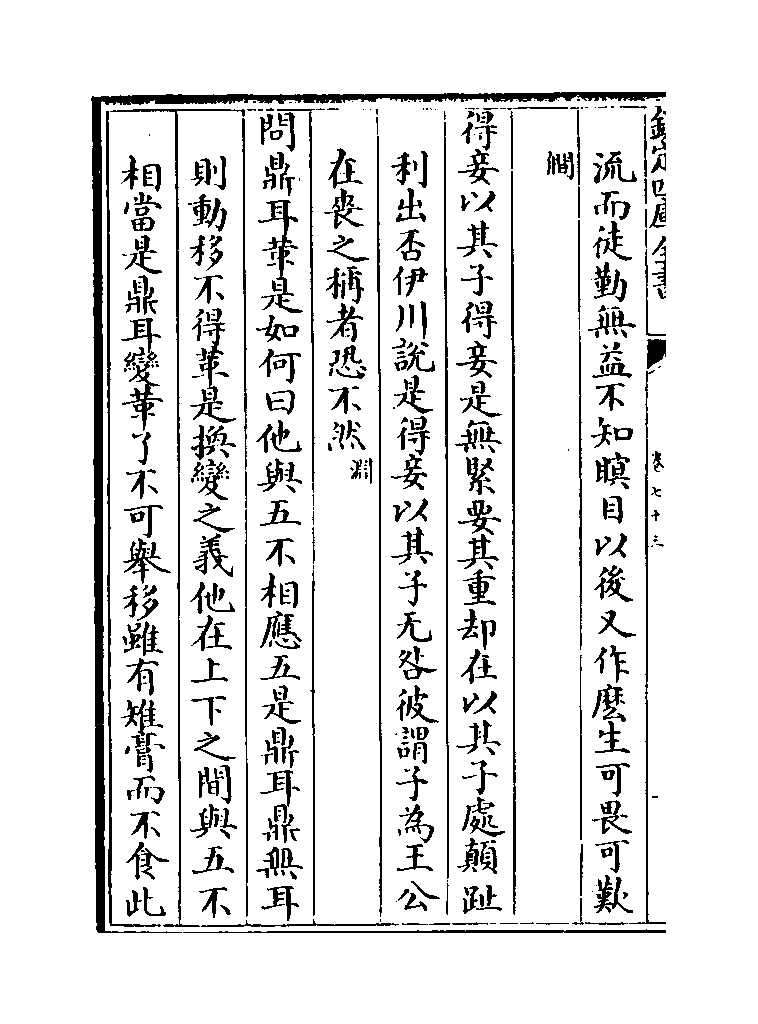 欽定四庫全書
卷七十三
流而徒勤無益不知瞑目以後又作麽生可畏可歎
㽦
得妾以其子得妾是無緊要其重却在以其子處顛趾
利出否伊川說是得妾以其子无咎彼謂子為王公
在喪之稱者恐不然淵
問鼎耳革是如何曰他與五不相應五是鼎耳鼎無耳
則動移不得革是換變之義他在上下之間與五不
相當是鼎耳變革了不可舉移雖有雉膏而不食此